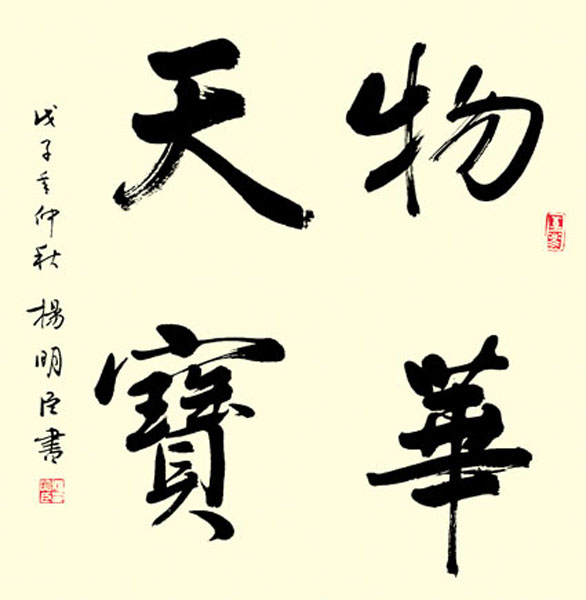 物華
天寶
戊子年仲秋 楊明臣書